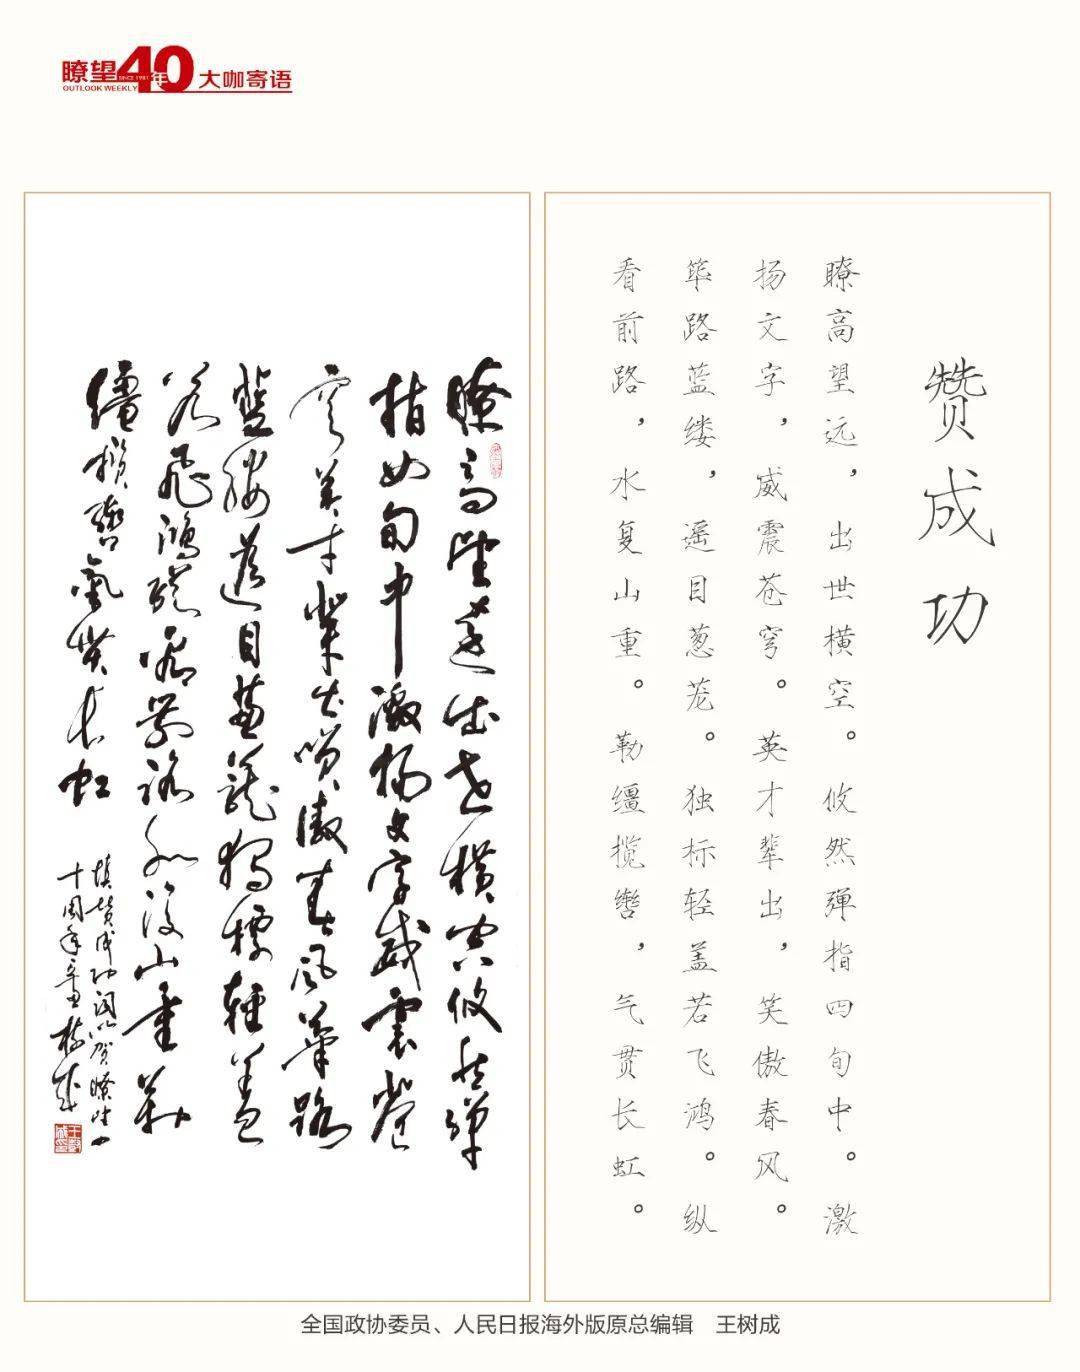 瞭望40年
SINCE 1981
OUTLOOK WEEKLY
大咖寄语
瞭高望远出世横空攸然弹
指四旬中激扬文字威震苍
穹英才辈出笑傲春风筚路
蓝缕遥目葱茏独标轻盖
若飞鸿纵看前路水复山重勒
缰揽辔气贯长虹
填赞成功词以贺瞭望四
十周年辛丑树成
赞成功
瞭高望远，出世横空。攸然弹指四旬中。激
扬文字，威震苍穹。英才辈出，笑傲春风。
筚路蓝缕，遥目葱茏。独标轻盖若飞鸿。纵
看前路，水复山重。勒缰揽辔，气贯长虹。
全国政协委员、人民日报海外版原总编辑 王树成